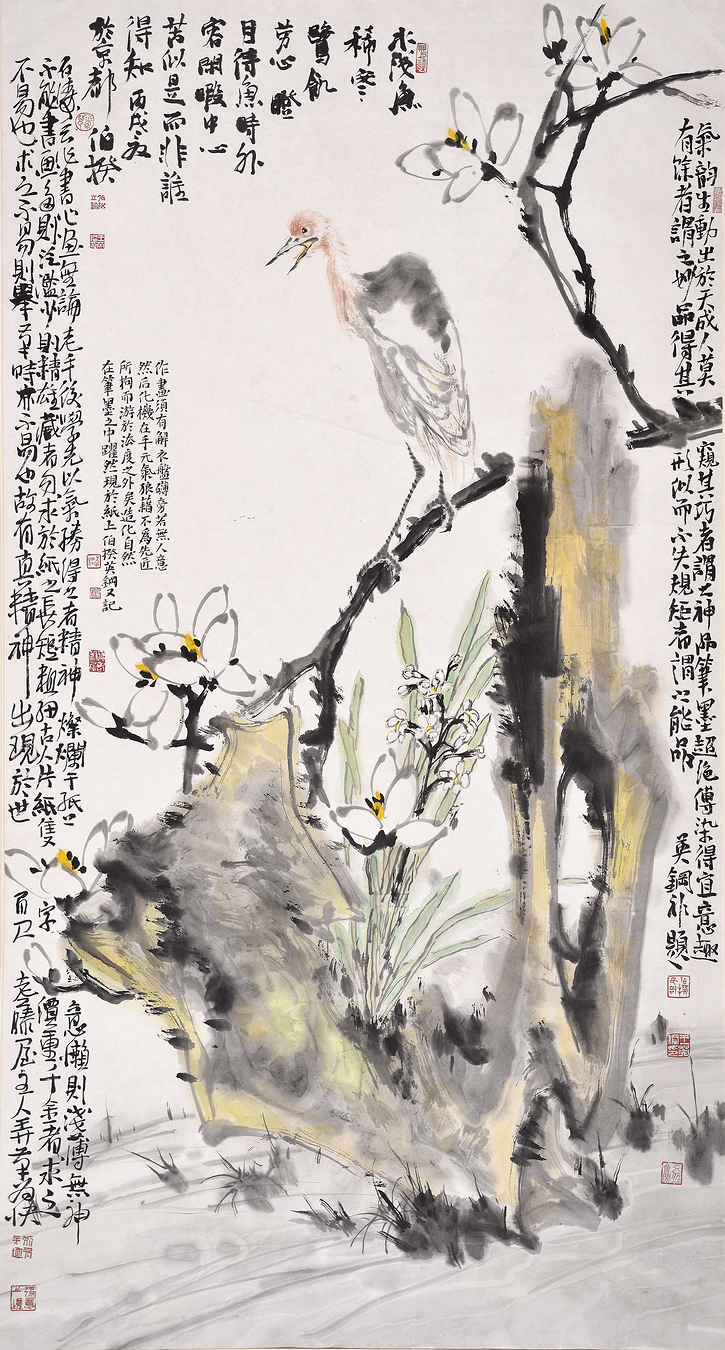 水浅魚
稀
鷺飢
劳心瞪
目待魚時外
容閑暇中心
苦似是而非誰
得知 丙戌
於京都 伯揆
氣韵生動出於天成人莫窺其巧者謂之神品筆墨超絶傅染得宜意趣
有馀者謂之妙品得其形似而不失規矩者謂以能品 英鋼補題
作畫須有解衣盤礴旁若無人意
然后化機在手元氣狼籍不爲先匠
所拘而游於法度之外矣造化自然
在筆墨之中躍然現於紙上伯揆英鋼又記
石濤云作書作畫無論老手後學先以氣勝得之者精神燦爛于紙上意懶則淺薄無神
不能書画多則泛濫少則精雄藏者勿求於紙之長短粗細古人片紙隻字價重千金者求之
不易也求之不易則舉筆時亦不易也故有真精神出現於世